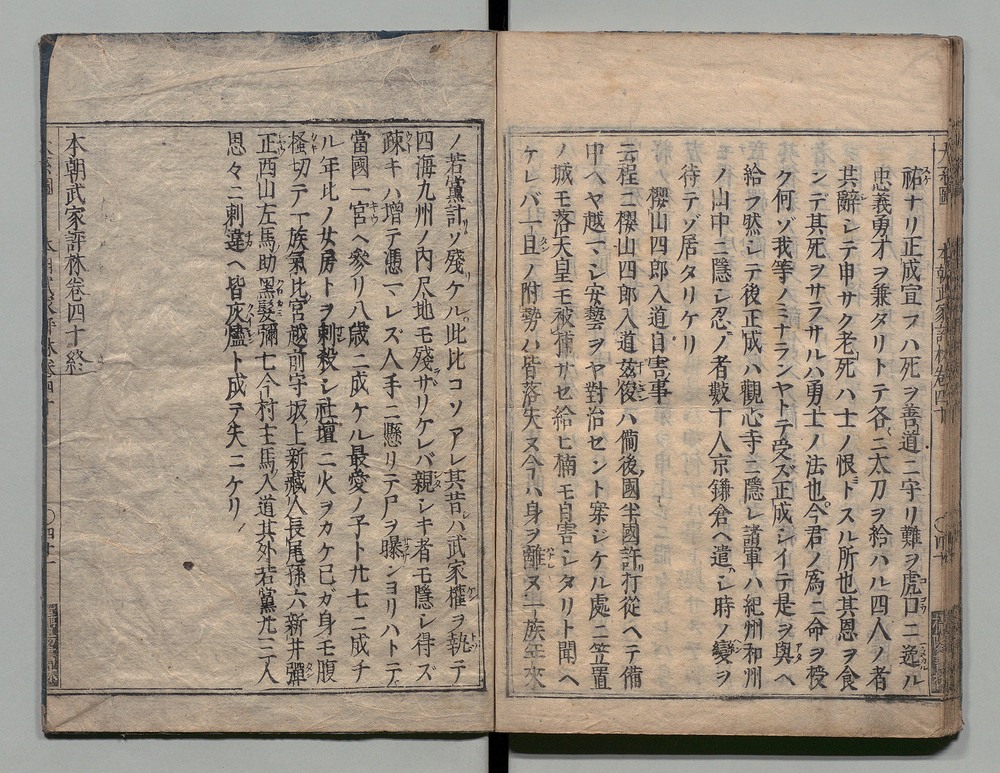 祐ナリ正成宣フハ死ヲ善道ニ守リ難ヲ虎口ニ逸ル
忠義勇才ヲ兼タリトテ各ニ太刀ヲ給ハル四人ノ者
其辭シテ申サク老死ハ士ノ恨トスル所也其恩ヲ食
ンデ其死ヲサラサルハ勇士ノ法也今君ノ爲ニ命ヲ授
ク何ゾ我等ノミナランヤトテ受ズ正成シイテ是ヲ與ヘ
給フ然シテ後正成ハ觀心寺ニ隱レ諸軍ハ紀州和州
ノ山中ニ隱レ忍ノ者數十人京鎌倉ヘ遣シ時ノ變ヲ
待テゾ居タリケリ
櫻山四郎入道自害事
去程ニ櫻山四郎入道茲俊ハ備後國半國許打從ヘテ備
中ヘヤ越マシ安藝ヲヤ對治セント案ジケル處ニ笠置
ノ城モ落天皇モ被擒サセ給ヒ楠モ自害シタリト聞ヘ
ケレバ一旦ノ附勢ハ皆落失ヌ今ハ身ヲ離ヌ一族年來
ノ若黨計ソ殘ケル此比コソアレ其昔ハ武家權ヲ執テ
四海九州ノ内尺地モ殘サリケレバ親シキ者モ隱シ得ズ
疎キハ増テ憑マレズ人手ニ懸リテ尸ヲ曝ンヨリハトテ
當國一宮ヘ參リ八歳ニ成ケル最愛ノ子ト廿七ニ成チ
ル年比ノ女房トヲ刺殺シ社壇ニ火ヲカケ己ガ身モ腹
掻切テ一族氣比宮越前守坂上新藏人長尾孫六新井彈
正西山左馬助黒髮彌七今村主馬入道其外若黨廿二人
思々ニ刺違ヘ皆灰燼ト成テ失ニケリ
本朝武家評林卷四十終